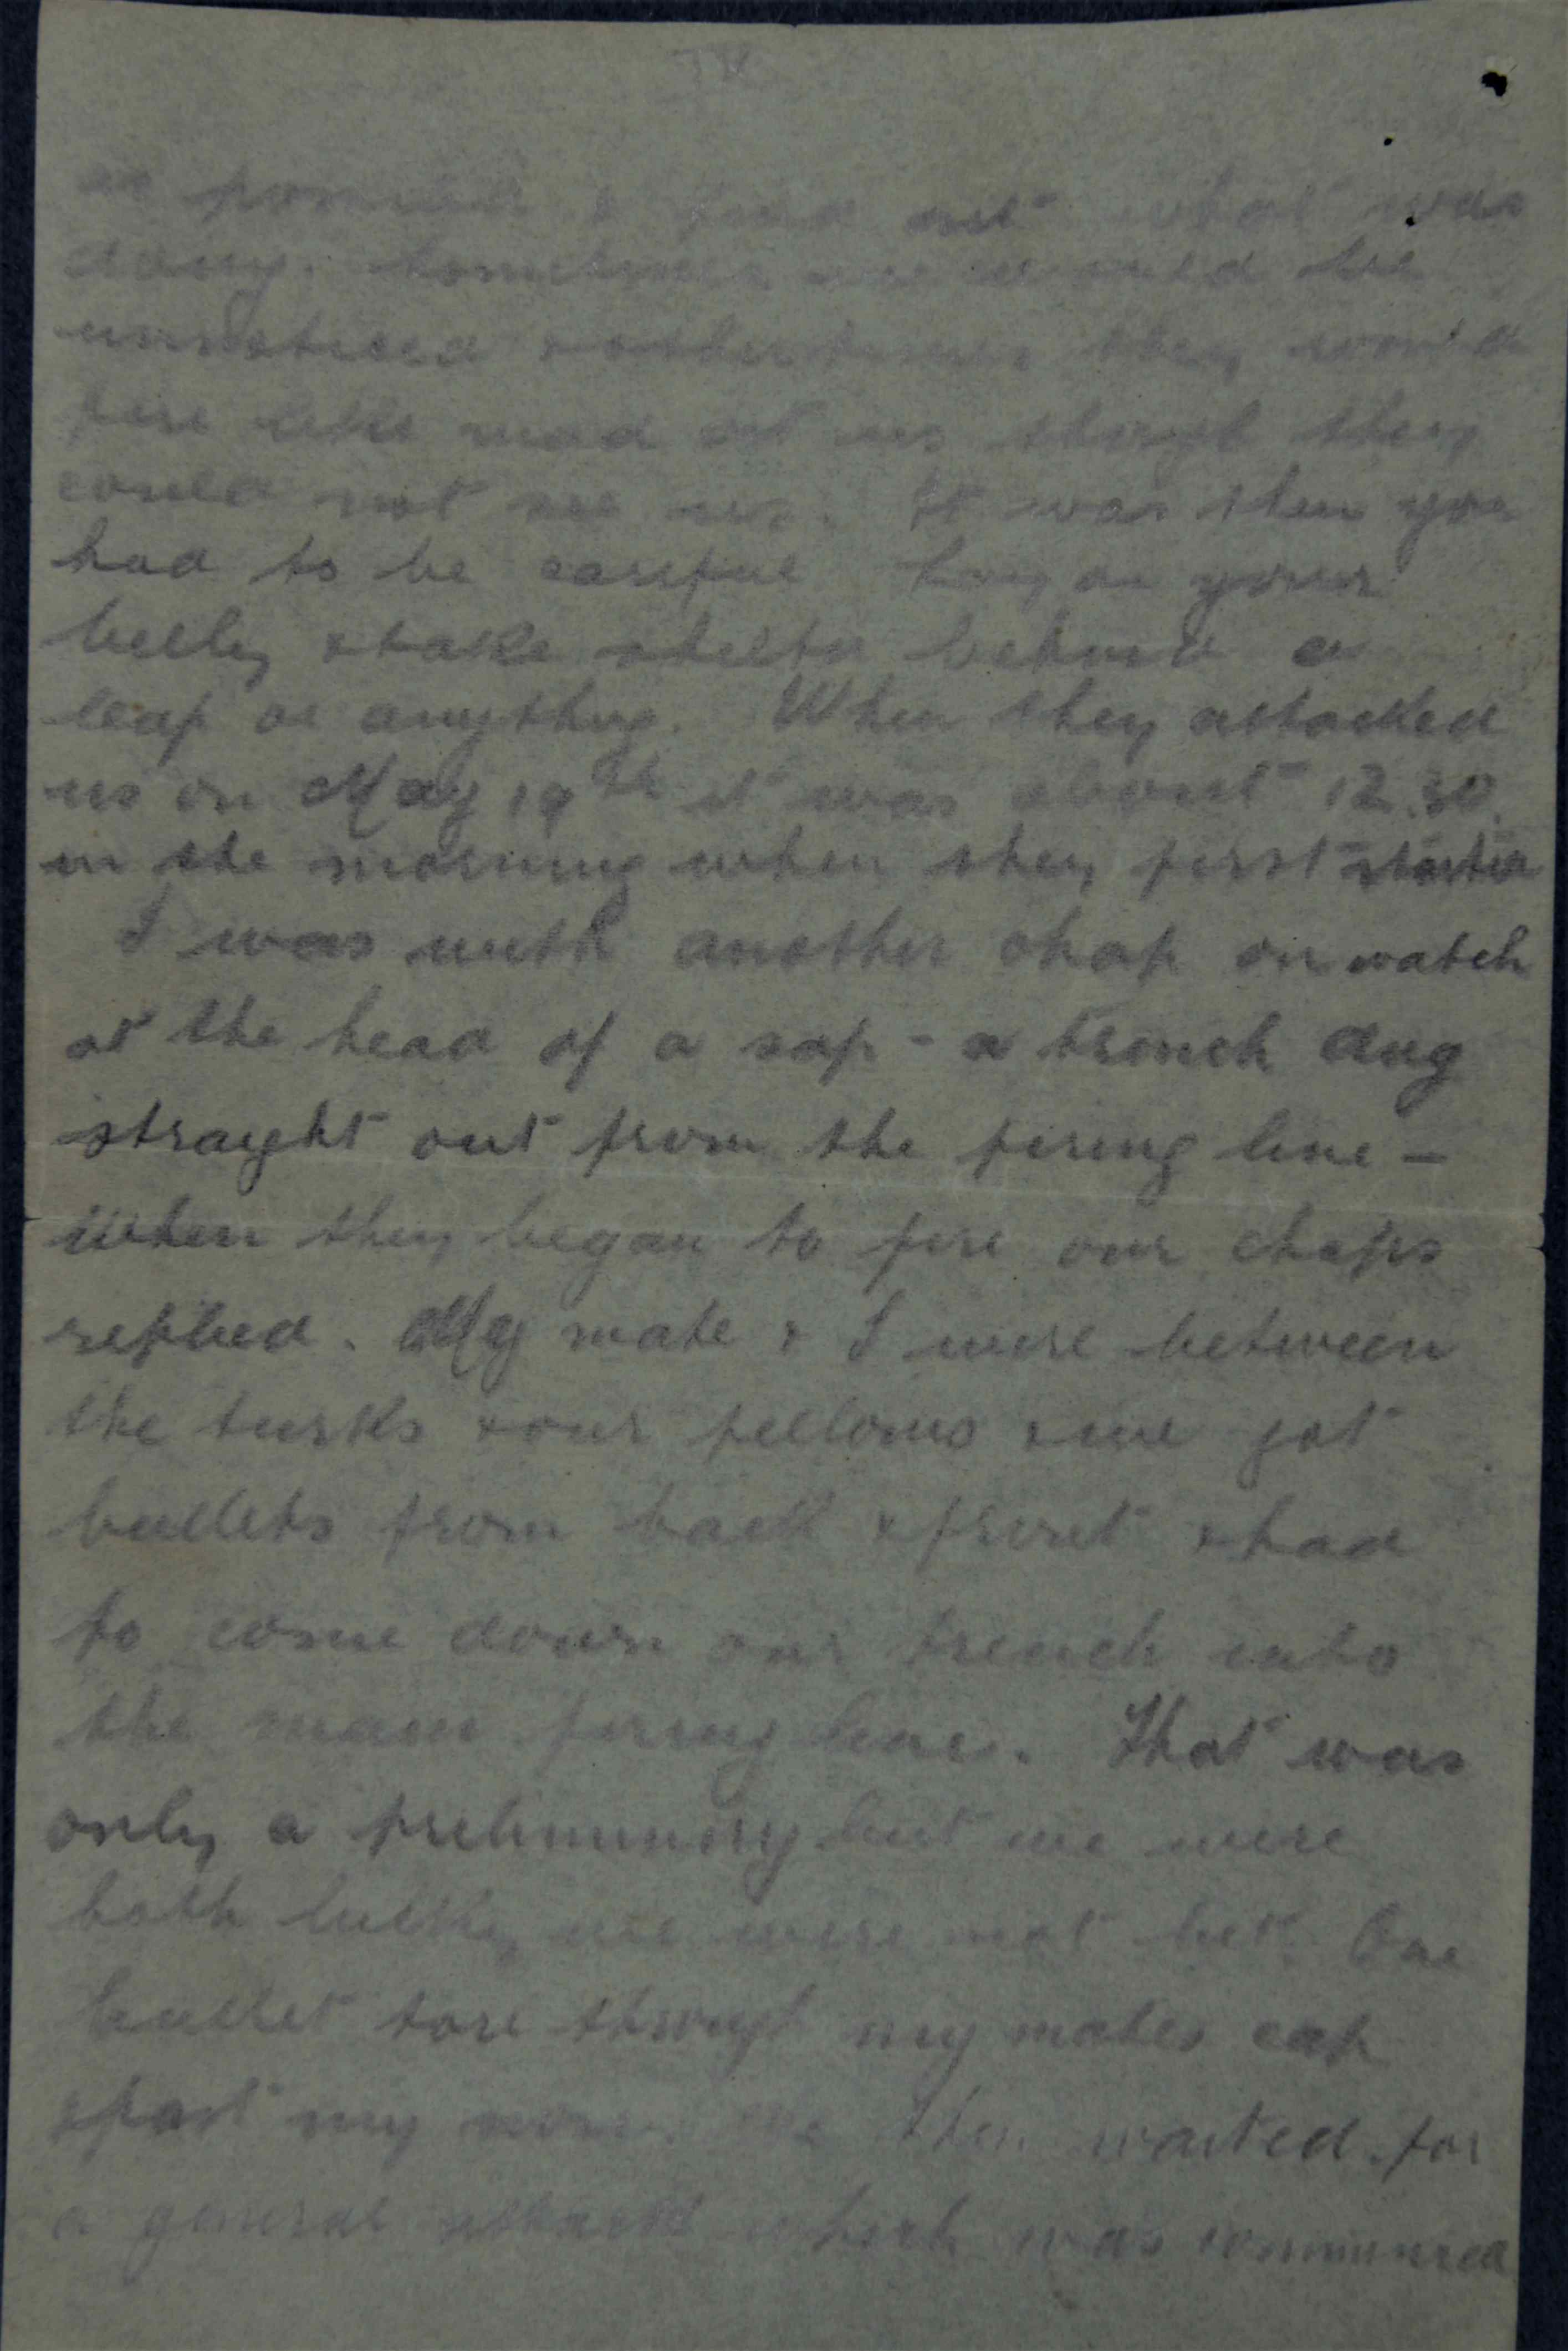 IV
as possible & find out what was
doing. Sometimes we would be
unnoticed & other times they would
fire like mad at us though they
could not see us. It was then you
had to be careful lay on your
belly & take shelter behind a
leaf or anything. When they attacked
us on May 19th it was about 12.30.
in the morning when they first started
I was with another chap on watch
at the head of a sap - a trench dug
straight out from the firing line -
when they began to fire our chaps
replied. My mate & I were between
the turks & our fellows & we got
bullets from back & front & had
to come down our trench into
the main firing line. That was
only a preliminary but we were
both lucky we were not hit. One
bullet tore through my mates cap
& past my nose. We then waited for
a general attack which was commenced